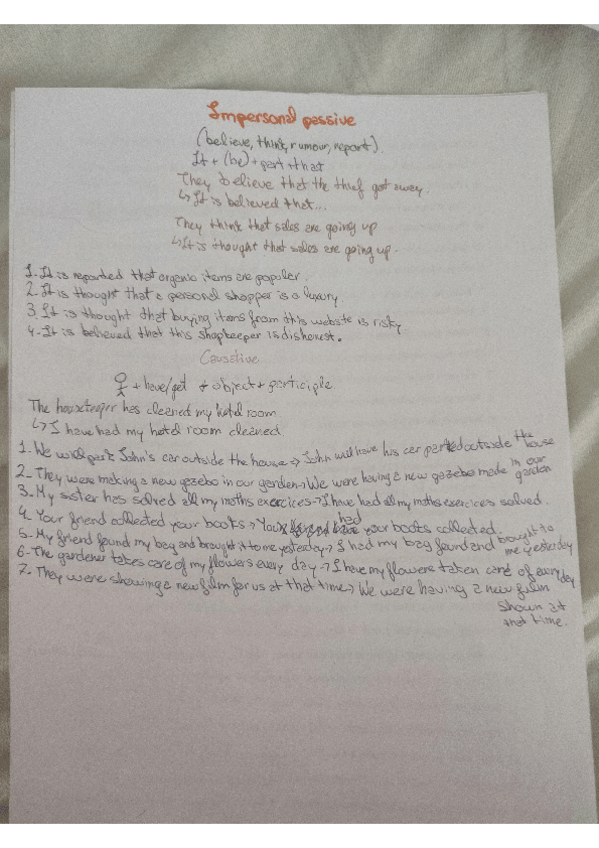 Impersonal passive
(believe, think, rumour, report)
It + (be) + part + that
They believe that the thief got away.
↳ It is believed that...
They think that sales are going up
↳ It is thought that sales are going up.
1. It is reported that organic items are popular.
2. It is thought that a personal shopper is a luxury.
3. It is thought that buying items from this website is risky.
4. It is believed that this shopkeeper is dishonest.
Causative
+ have/get + object + participle
The housekeeper has cleaned my hotel room.
↳ I have had my hotel room cleaned.
1. We will park John's car outside the house → John will have his car parked outside the house
2. They were making a new gazebo in our garden → We were having a new gazebo made in our garden
3. My sister has solved all my maths exercices → I have had all my maths exercices solved.
4. Your friend collected your books → You had your books collected.
5. My friend found my bag and brought it to me yesterday → I had my bag found and brought to me yesterday
6. The gardener takes care of my flowers every day → I have my flowers taken care of every day
7. They were showing a new film for us at that time → We were having a new film
shown at
that time.